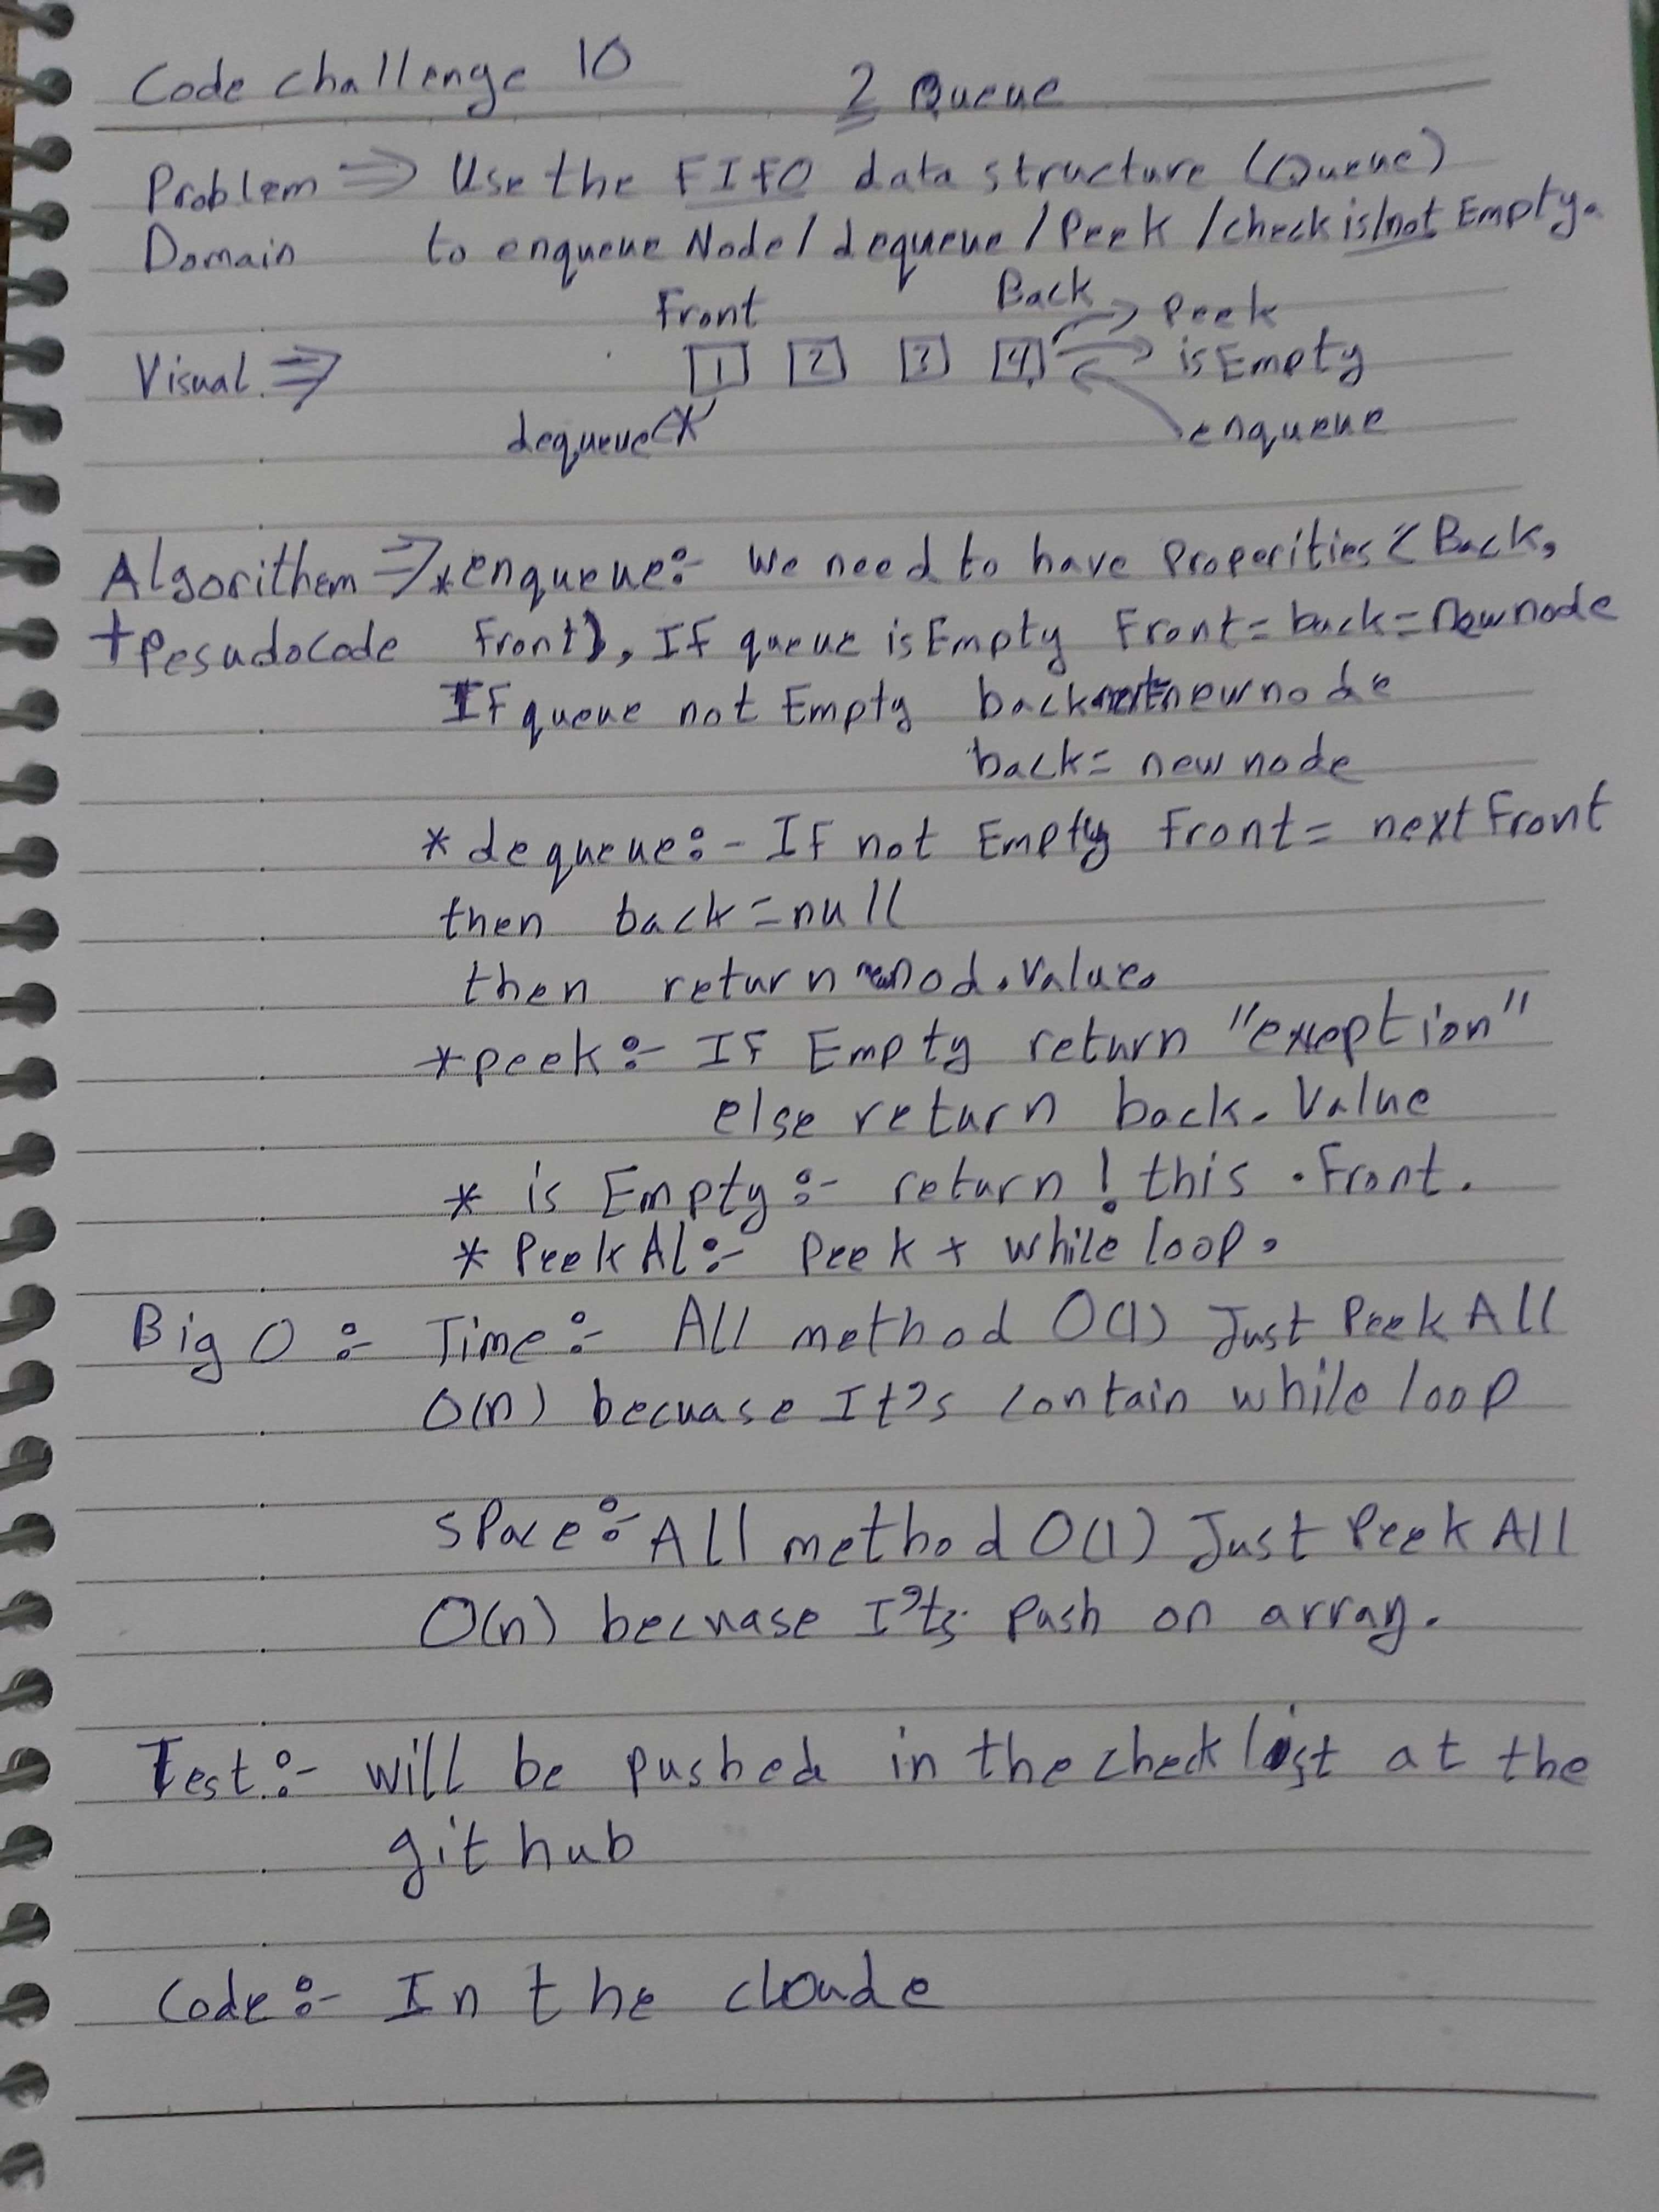 Code challenge 10 2 Queue
Problem ⇒ Use the FIFO data structure (Queue)
Domain to enqueue Node / dequeue / Peek / check is/not Empty.
Front Back → Peek
Visual ⇒ 1 2 3 4 → isEmpty
dequeue enqueue
Algorithem ⇒ * enqueue:- We need to have Properities (Back,
+ Pesudocode Front), If queue is Empty Front = back = New node
If queue not Empty back next = new node
back = new node
* dequeue:- If not Empty Front = next Front
then back = null
then return nod.Value.
* peek:- If Empty return "exeption"
else return back.Value
* is Empty:- return ! this.Front.
* Peek Al:- Peek + while loop.
Big O :- Time:- All method O(1) Just Peek All
O(n) becuase It's contain while loop
space:- All method O(1) Just Peek All
O(n) becuase I'ts push on array.
Test:- will be pushed in the check list at the
git hub
Code:- In the cloude